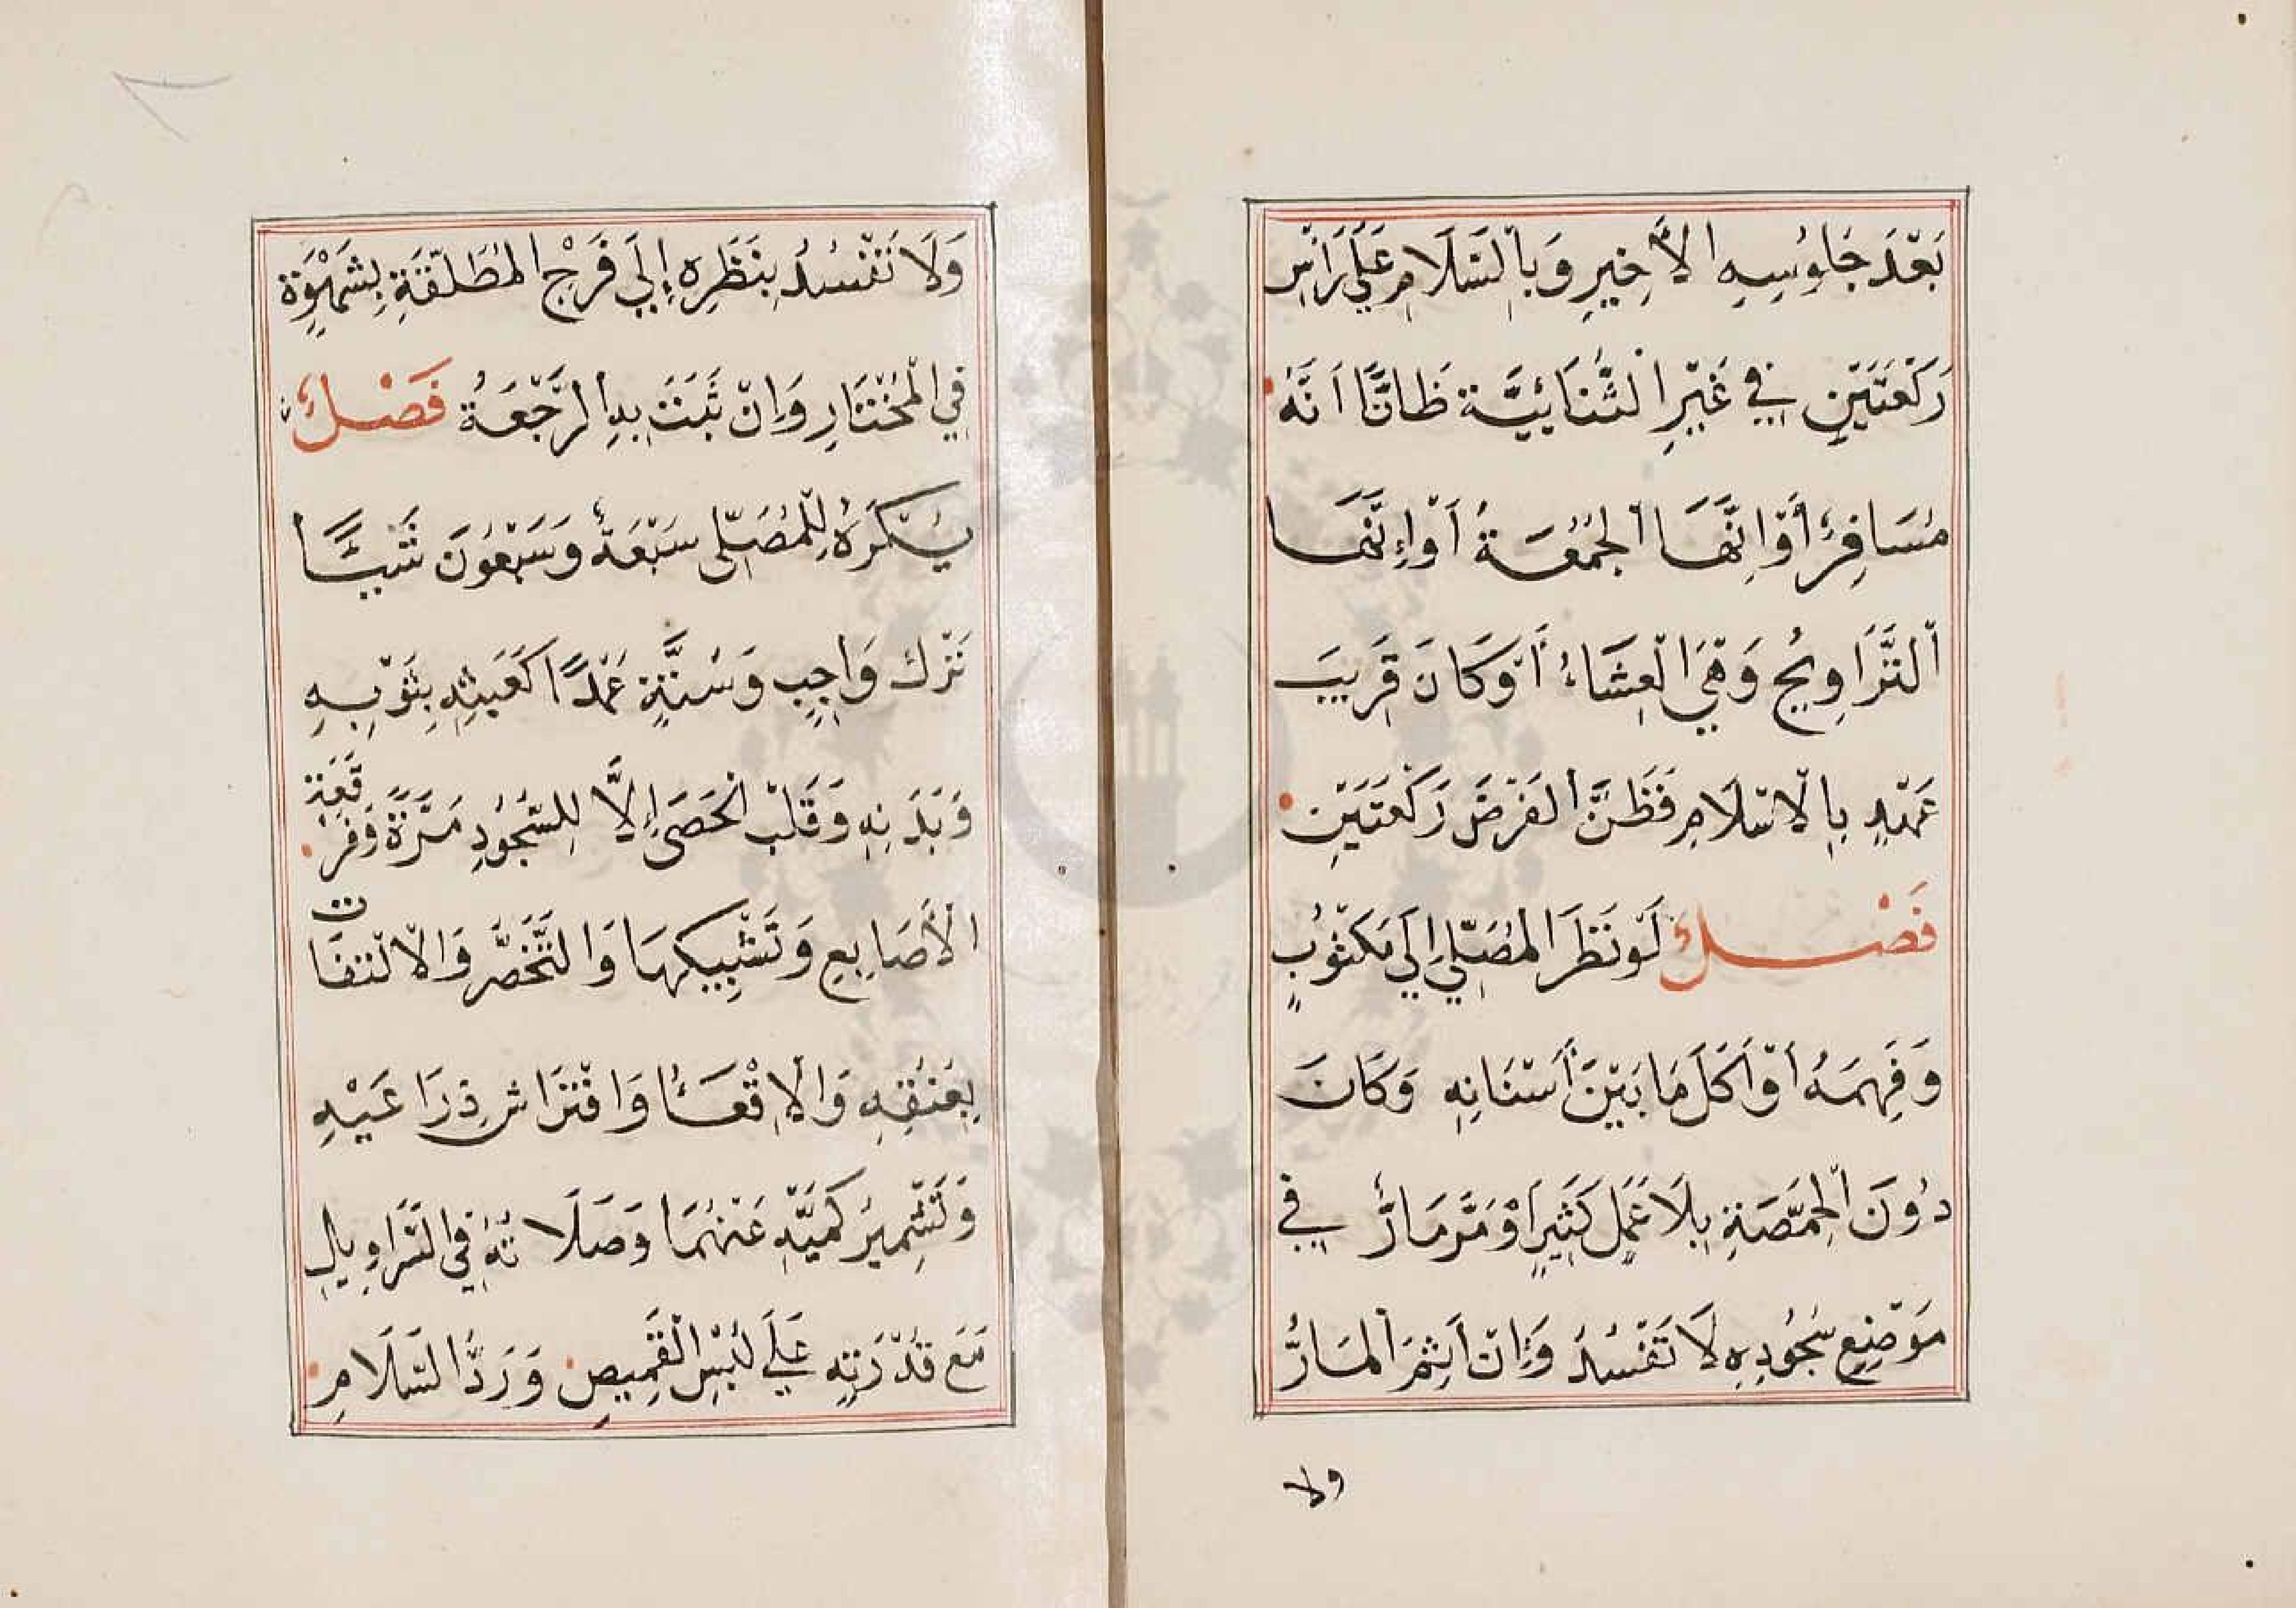 بَعْدَ جَلُوسِهِ الْأَخِيرِ وَبِالسَّلَامِ عَلَى رَأْسِ
رَكْعَتَيْنِ فِي غَيْرِ الثُّنَائِيَّةِ ظَانًّا اَنَّهُ
مُسَافِرٌ أَوْ اِنَّهَا الْجُمُعَةُ اَوْ إِنَّهَا
اَلتَّرَاوِيحُ وَهِيَ الْعِشَاءُ أَوْ كَانَ قَرِيبَ
عَهْدٍ بِالْاِسْلَامِ فَظَنَّ الْفَرْضَ رَكْعَتَيْنِ
فَصْلٌ لَوْ نَظَرَ الْمُصَلِّي إِلَى مَكْتُوبٍ
وَفَهِمَهُ اَوْ اَكَلَ مَا بَيْنَ أَسْنَانِهِ وَكَانَ
دُونَ الْحِمَّصَةِ بِلَا عَمَلٍ كَثِيرٍ اَوْ مَرَّ مَارٌّ فِي
مَوْضِعِ سُجُودِهِ لَا تَفْسُدُ وَإِنْ اَثِمَ الْمَارُّ
ولا
وَلَا تَفْسُدُ بِنَظَرِهِ إِلَى فَرْجِ الْمُطَلَّقَةِ بِشَهْوَةٍ
فِي الْمُخْتَارِ وَاِنْ ثَبَتَ بِهِ الرَّجْعَةُ فَصْلٌ
يُكْرَهُ لِلْمُصَلِّى سَبْعَةٌ وَسَبْعُونَ شَيْئًا
تَرْكُ وَاجِبٍ وَسُنَّةٍ عَمْدًا كَعَبَثِهِ بِثَوْبِهِ
وَبَدَنِهِ وَقَلْبِ الْحَصَى إِلَّا لِلسُّجُودِ مَرَّةً وَفَرْقَعَةِ
الْأَصَابِعِ وَتَشْبِيكِهَا وَالتَّخَصُّرِ وَالْاِلْتِفَاتِ
بِعُنُقِهِ وَالْاِقْعَاءُ وَافْتِرَاشِ ذِرَاعَيْهِ
وَتَشْمِيرُ كُمَّيْهِ عَنْهُمَا وَصَلَاتُهُ فِي السَّرَاوِيلِ
مَعَ قُدْرَتِهِ عَلَى لُبْسِ الْقَمِيصِ وَرَدُّ السَّلَامِ